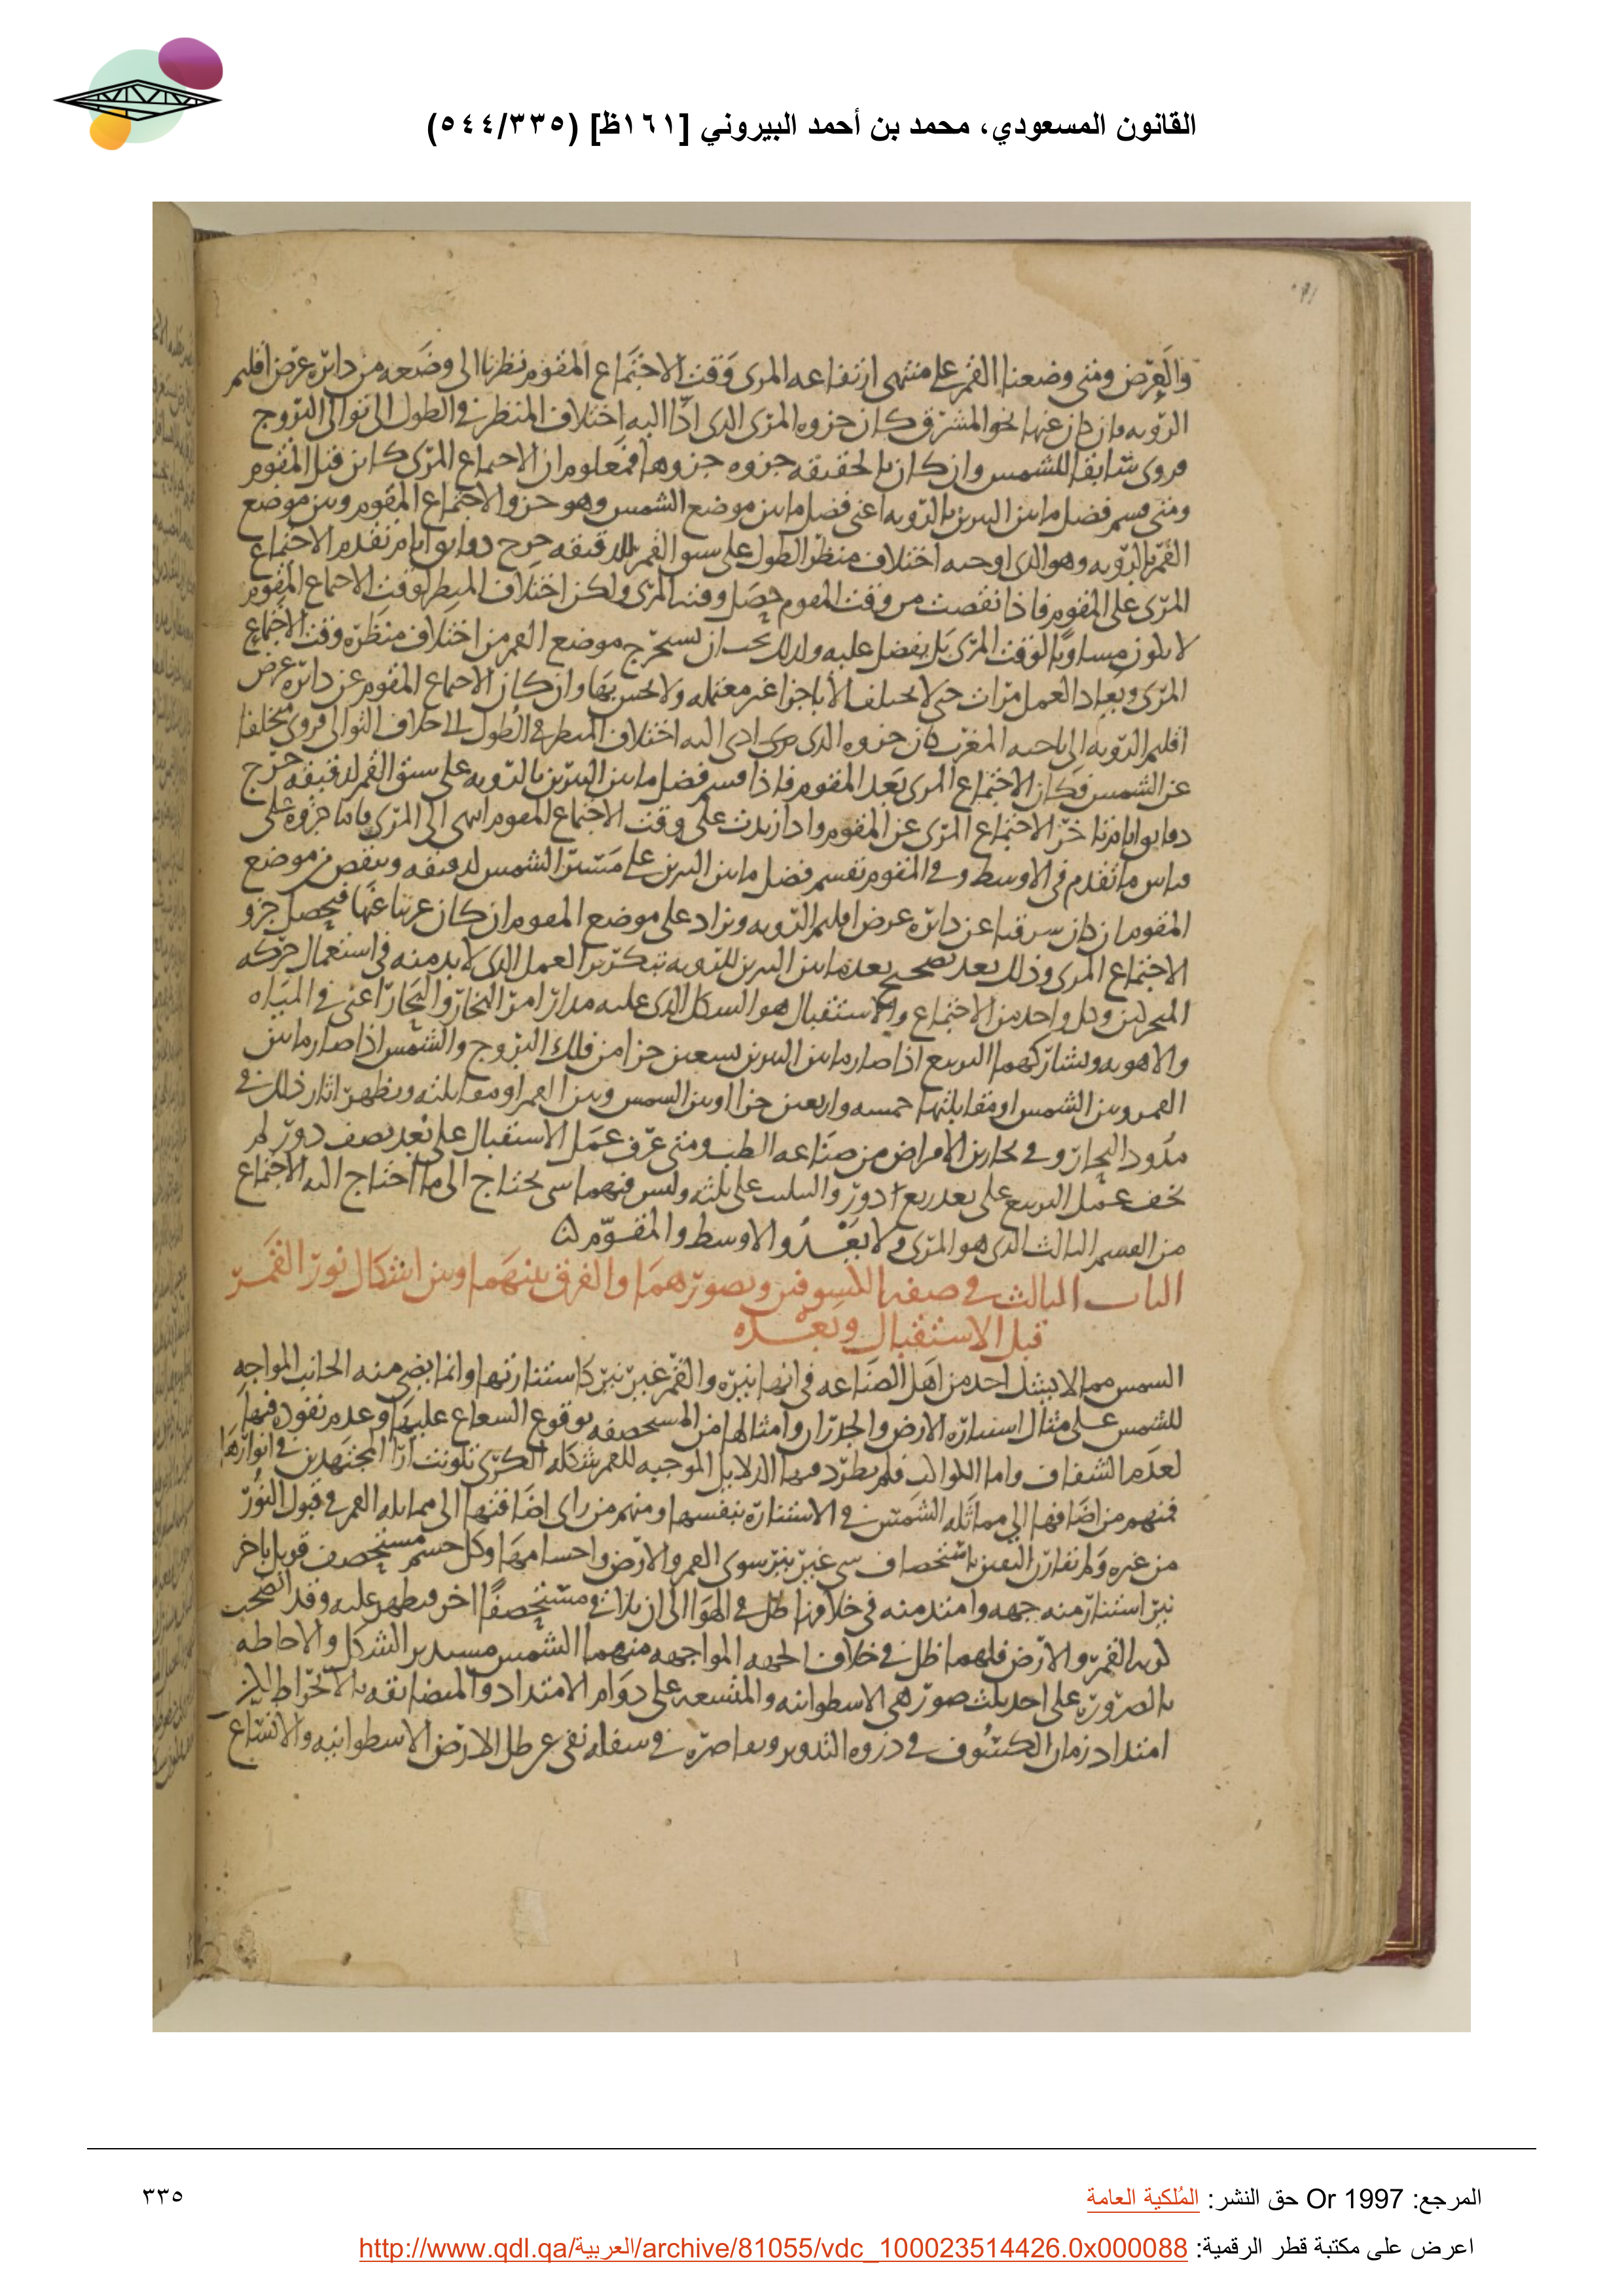 القانون المسعودي، محمد بن أحمد البيروني [١٦١ظ] (٥٤٤/٣٣٥)
والعرض ومتى وضعنا القمر على منتهى ارتفاعه المرى وقت الاجتماع المقوم نظرنا الى وضعه من دائره عرض اقليم
الرويه فان كان عنها نحو المشرق كان جزوه المرى الذى اداا اليه اختلاف المنظر فى الطول الى توالى البروج
فروى سابقا للشمس وان كان بالحقيقه جزوه جزوها فمعلوم ان الاجتماع المرى كاين قبل المقوم
ومتى قسم فضل ما بين النيرين بالرويه اعنى فضل ما بين موضع الشمس وهو جزو الاجتماع المقوم وبين موضع
القمر بالرويه وهو الذى اوجبه اختلاف منظر الطول على سبق القمر لدقيقه خرج دقايق ايام تقدم الاجتماع
المرى على المقوم فاذا نقصت من وقت المقوم حصل وقت المرى ولكن اختلاف المنظر لوقت الاجتماع المقوم
لا يكون مساويا لوقت المرى بل يفضل عليه ولذلك يجب ان يستخرج موضع القمر من اختلاف منظره وقت الاجتماع
المرى ويعاد العمل مرات حتى لا يختلف الا باجزا غير معتمله ولا يحس بها وان كان الاجتماع المقوم عن دائره عرض
اقليم الرويه الى ناحيه المغرب كان جزوه الذى ادى اليه اختلاف المنظر فى الطول الى خلاف التوالى فروى متخلفا
عن الشمس فكان الاجتماع المرى بعد المقوم فاذا قسم فضل ما بين النيرين بالرويه على سبق القمر لدقيقه خرج
دقايق ايام تاخر الاجتماع المرى عن المقوم واذا زيدت على وقت الاجتماع المقوم انتهى الى المرى فاما جزوه فعلى
قياس ما تقدم فى الاوسط وفى المقوم نقسم فضل ما بين النيرين على مسير الشمس لدقيقه وينقص من موضع
المقوم ان كان شرقيا عن دائره عرض اقليم الرويه ويزاد على موضع المقوم ان كان غربيا عنها فيحصل جزو
الاجتماع المرى وذلك بعد تصحيح بعد ما بين النيرين للرويه بتكرير العمل الذى لا بد منه فى استعمال حركه
المتحركين وكل واحد من الاجتماع والاستقبال هو الشكل الذى عليه مدار امر البخار والبحار اعنى فى المياه
والاهويه ويشاركهما التربيع اذا صار ما بين النيرين تسعين جزا من فلك البروج والشمس اذا صار ما بين
القمر وبين الشمس او مقابلتها خمسه واربعين جزا او بين الشمس وبين القمر او مقابلته ويظهر اثار ذلك فى
مدود البحار وفى بحارين الامراض من صناعه الطب ومتى عرف عمل الاستقبال على بعد نصف دور لم
يخف عمل التربيع على بعد ربع دور والتثليث على ثلثه وليس فيهما شى يحتاج الى ما احتاج اليه الاجتماع
من القسم الثالث الذى هو المرى ولا يعدو الاوسط والمقوم
الباب الثالث فى صفه الكسوفين وتصورهما والفرق بينهما وبين اشكال نور القمر
قبل الاستقبال وبعده
الشمس مما لا يشك احد من اهل الصناعه فى انها نيره والقمر غير نير كاستنارتها وانما يضى منه الجانب المواجه
للشمس على مثال استناره الارض والجدران وامثالها من المستحصفه بوقوع الشعاع عليها وعدم نفوذه فيها
لعدم الشفاف واما الكواكب فلم يطرد فيها الدلايل الموجبه للقمر شكله الكرى تلونت ارا المجتهدين فى انوارها
فمنهم من اضافها الى مماثله الشمس فى الاستناره بنفسها ومنهم من راى اضافتها الى مماثله القمر فى قبول النور
من غيره ولم تقارن اليقين باستحصاف شى غير نير سوى القمر والارض واجسامها وكل جسم مستحصف قوبل باخر
نير استنار منه جهه وامتد منه فى خلافها ظل فى الهوا الى ان يلاقى مستحصفا اخر فيظهر عليه وقد اتضحت
كريه القمر والارض فلهما ظل فى خلاف الجهه المواجهه منهما الشمس مستدير الشكل والاحاطه
بالضروره على احد ثلث صور هى الاسطوانيه والمتسعه على دوام الامتداد والمتضايقه بالانخراط لكن
امتداد زمان الكسوف فى ذروه التدوير وتقاصره فى سفله نفى عن ظل الارض الاسطوانيه والاتساع
المرجع: Or 1997 حق النشر: المُلكية العامة
٣٣٥
اعرض على مكتبة قطر الرقمية: http://www.qdl.qa/العربية/archive/81055/vdc_100023514426.0x000088